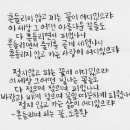 흔들리지 않고 피는 꽃이 어디있으랴
이 세상 그 어떤 아름다운 꽃들도
다 흔들리면서 피었나니
흔들리면서 줄기를 곧게 세웠나니
흔들리지 않고 가는 사랑이 어디있으랴
젖지않고 피는 꽃이 어디있으랴
이 세상 그 어떤 빛나는 꽃들도
다 젖으며 젖으며 피었나니
바람과 비에 젖으며 꽃잎 따뜻하게 피웠나니
젖지 않고 가는 삶이 어디있으랴
- 흔들리며 피는 꽃, 도종환